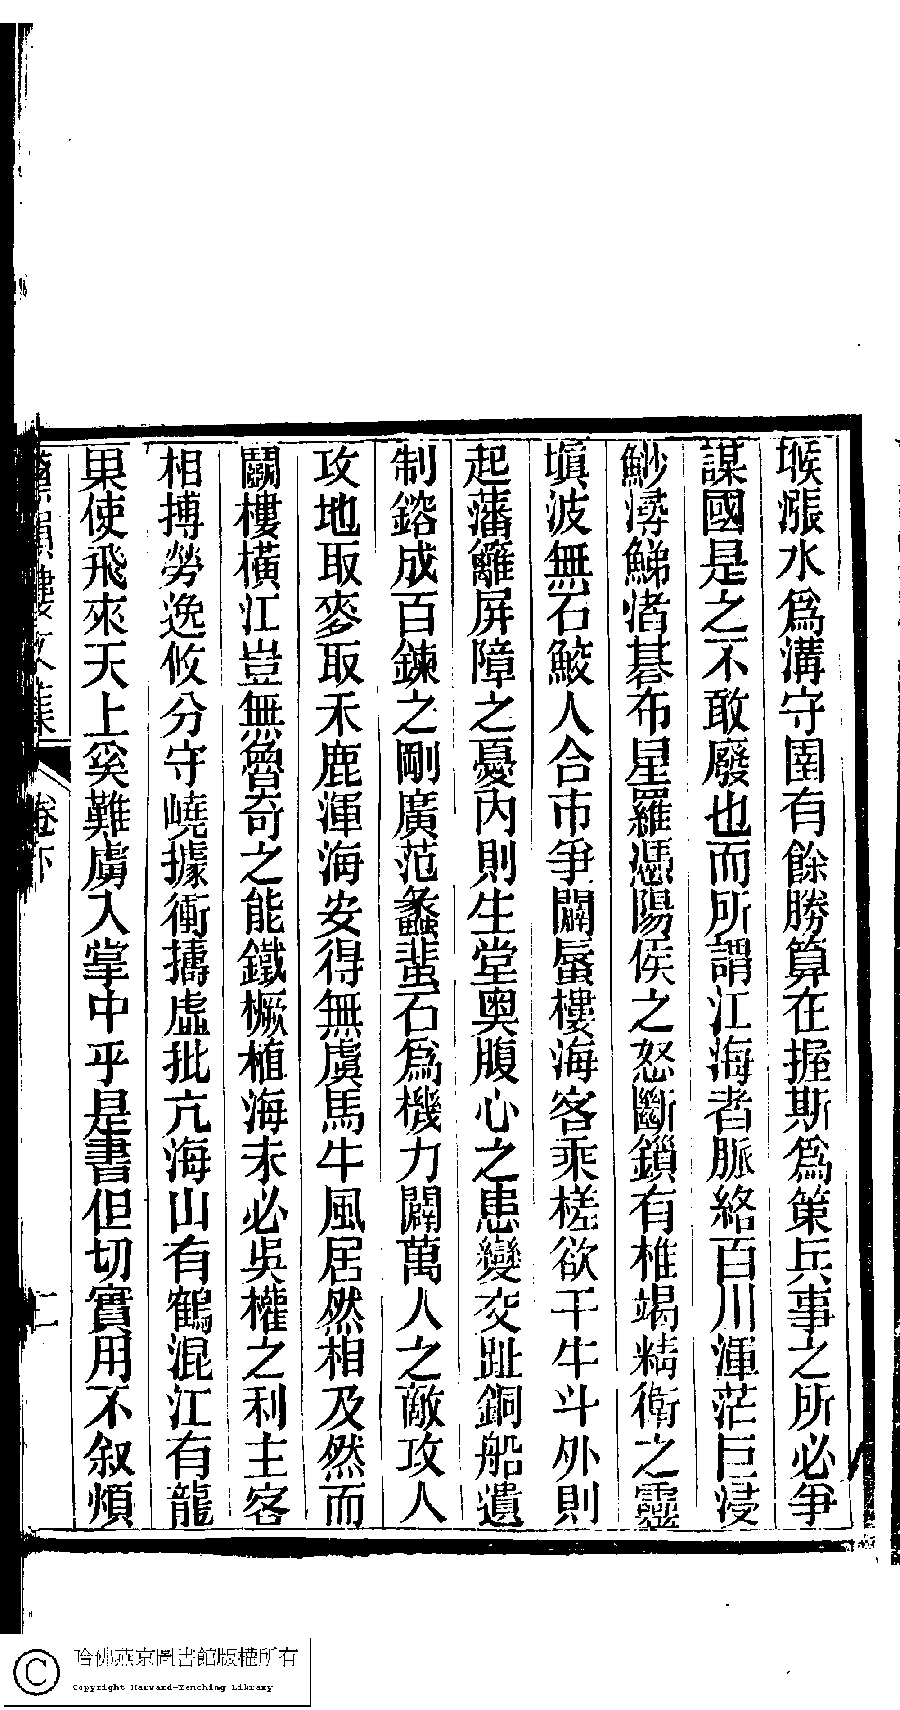 堠漲水為溝守圉有餘勝算在握斯為策兵事之所必爭
謀國是之不敢廢也而所謂江海者脈絡百川渾茫巨浸
魦潯鯷渚碁布星羅慿陽侯之怒斷鎖有椎竭精衛之靈
塡波無石鮫人合市爭闢蜃樓海客乘槎欲干牛斗外則
起藩籬屏障之憂內則生堂奧腹心之患變交趾銅船遺
制鎔成百鍊之剛廣范蠡蜚石為機力闢萬人之敵攻人
攻地取麥取禾鹿渾海安得無虞馬牛風居然相及然而
鬭樓橫江豈無魯奇之能鐵橛植海未必吳權之利主客
相搏勞逸攸分守嶢據衝擣虛批亢海山有鶴混江有龍
果使飛來天上奚難虜入掌中乎是書但切實用不叙煩
樓文集
卷下
二
哈佛燕京圖書館版權所有
Copyright Harvard-Yenching Library